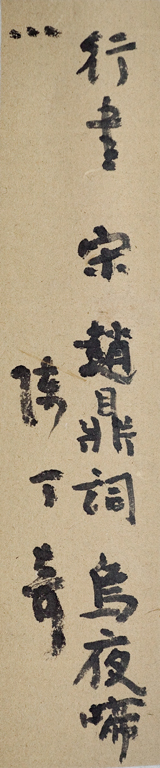 行書 宋 趙鼎詞 烏夜啼
陳丁奇